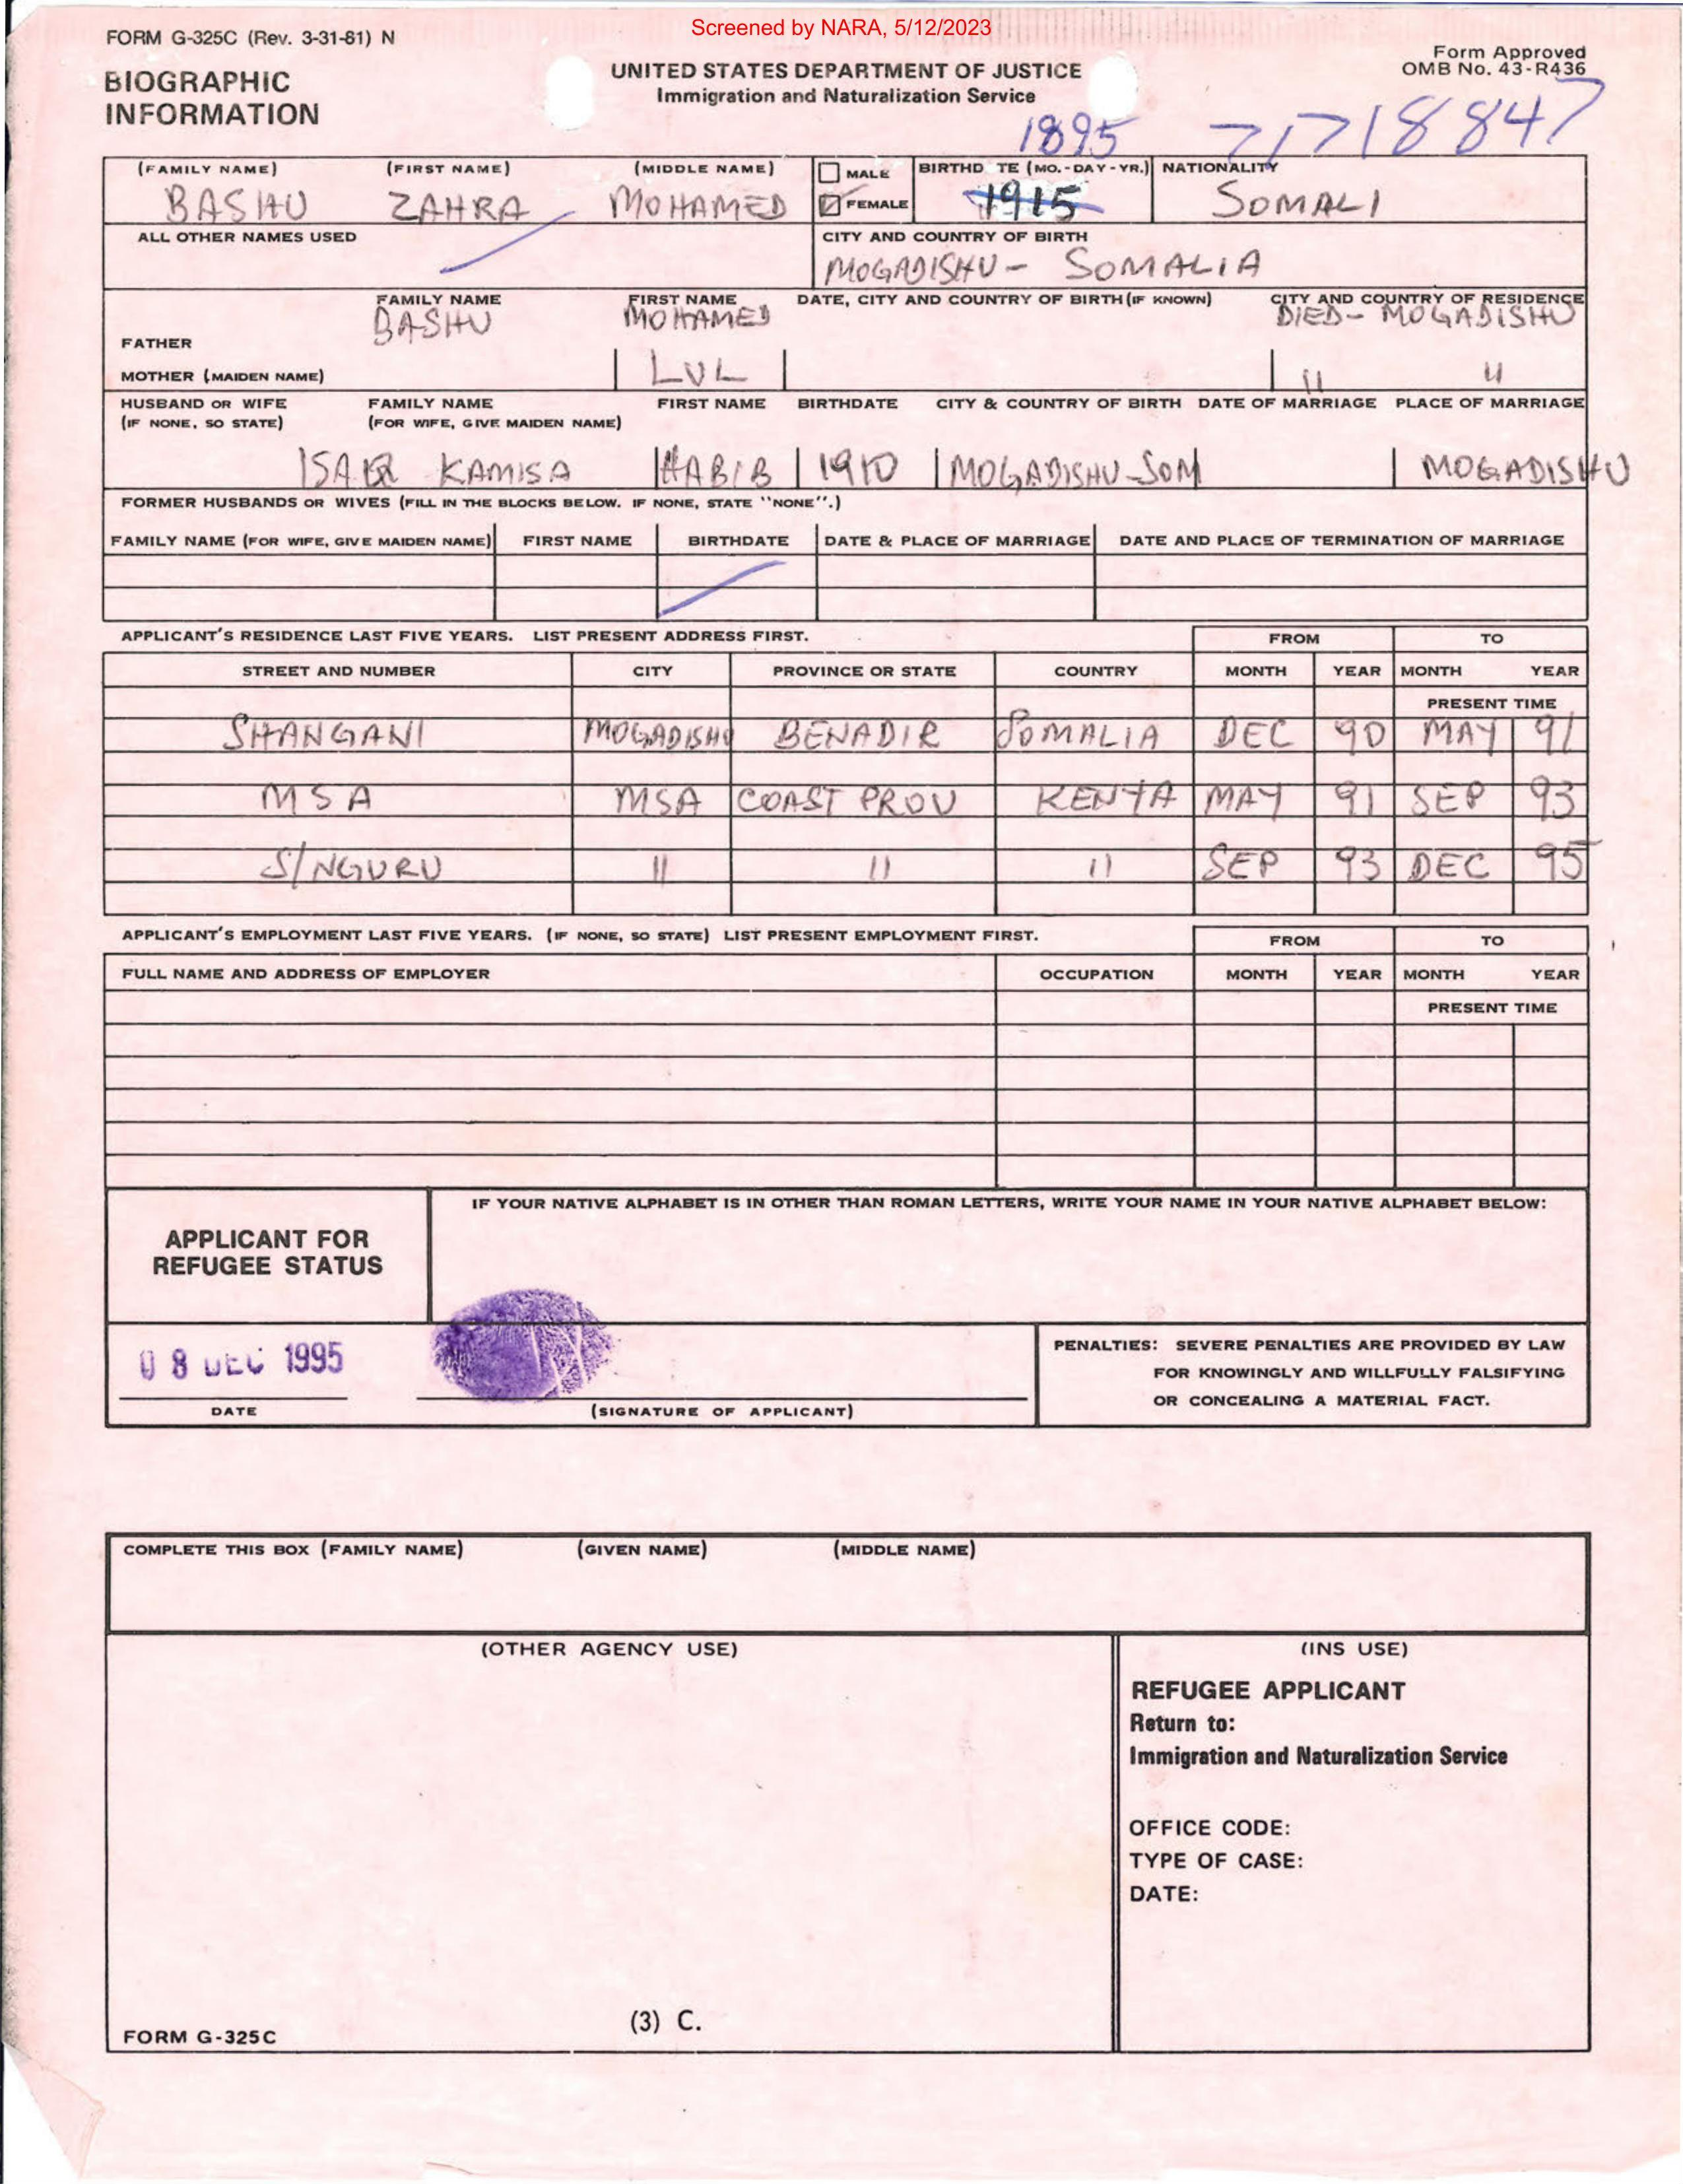 Screened by NARA, 5/12/2023
FORM G-325C (Rev. 3-31-81) N
Form Approved
OMB No. 43-R436
BIOGRAPHIC
INFORMATION
UNITED STATES DEPARTMENT OF JUSTICE
Immigration and Naturalization Service
1895 71718847
(FAMILY NAME) (FIRST NAME) (MIDDLE NAME) MALE BIRTHD TE (MO.-DAY-YR.) NATIONALITY
BASHU ZAHRA MOHAMED FEMALE 1915 SOMALI
ALL OTHER NAMES USED CITY AND COUNTRY OF BIRTH
MOGADISHU - SOMALIA
FAMILY NAME FIRST NAME DATE, CITY AND COUNTRY OF BIRTH (IF KNOWN) CITY AND COUNTRY OF RESIDENCE
BASHU MOHAMED DIED - MOGADISHU
FATHER
MOTHER (MAIDEN NAME) LUL 11 11
HUSBAND OR WIFE FAMILY NAME FIRST NAME BIRTHDATE CITY & COUNTRY OF BIRTH DATE OF MARRIAGE PLACE OF MARRIAGE
(IF NONE, SO STATE) (FOR WIFE, GIVE MAIDEN NAME)
KAMISA HABIB 1910 MOGADISHU-SOM MOGADISHU
FORMER HUSBANDS OR WIVES (FILL IN THE BLOCKS BELOW. IF NONE, STATE "NONE".)
FAMILY NAME (FOR WIFE, GIVE MAIDEN NAME) FIRST NAME BIRTHDATE DATE & PLACE OF MARRIAGE DATE AND PLACE OF TERMINATION OF MARRIAGE
APPLICANT'S RESIDENCE LAST FIVE YEARS. LIST PRESENT ADDRESS FIRST. FROM TO
STREET AND NUMBER CITY PROVINCE OR STATE COUNTRY MONTH YEAR MONTH YEAR
PRESENT TIME
SHANGANI MOGADISHU BENADIR SOMALIA DEC 90 MAY 91
MSA MSA COAST PROV KENYA MAY 91 SEP 93
S/NGURU 11 11 11 SEP 93 DEC 95
APPLICANT'S EMPLOYMENT LAST FIVE YEARS. (IF NONE, SO STATE) LIST PRESENT EMPLOYMENT FIRST. FROM TO
FULL NAME AND ADDRESS OF EMPLOYER OCCUPATION MONTH YEAR MONTH YEAR
PRESENT TIME
IF YOUR NATIVE ALPHABET IS IN OTHER THAN ROMAN LETTERS, WRITE YOUR NAME IN YOUR NATIVE ALPHABET BELOW:
APPLICANT FOR
REFUGEE STATUS
08 DEC 1995
DATE (SIGNATURE OF APPLICANT)
PENALTIES: SEVERE PENALTIES ARE PROVIDED BY LAW
FOR KNOWINGLY AND WILLFULLY FALSIFYING
OR CONCEALING A MATERIAL FACT.
COMPLETE THIS BOX (FAMILY NAME) (GIVEN NAME) (MIDDLE NAME)
(OTHER AGENCY USE) (INS USE)
REFUGEE APPLICANT
Return to:
Immigration and Naturalization Service
OFFICE CODE:
TYPE OF CASE:
DATE:
(3) C.
FORM G-325C